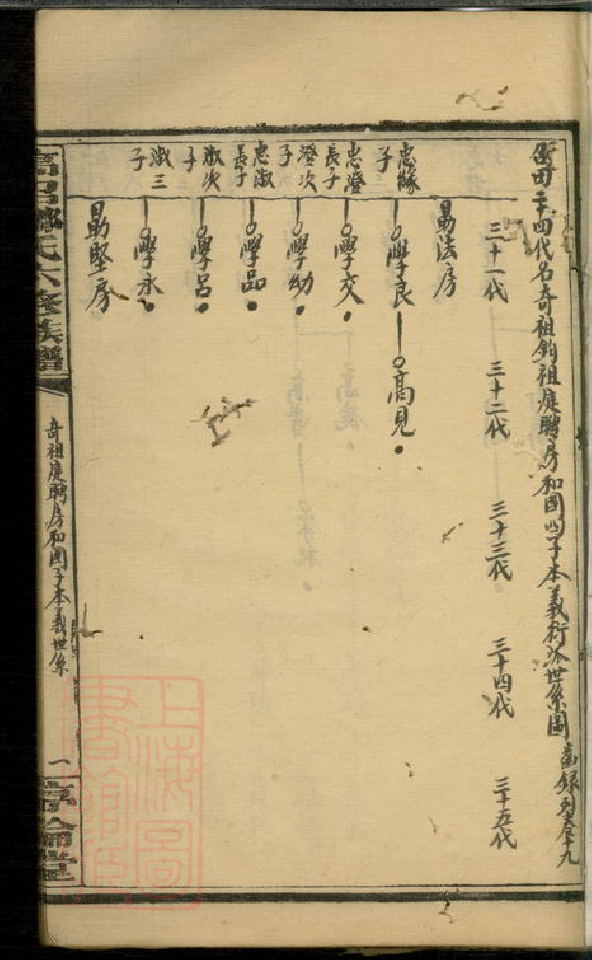 四代名奇祖鈞祖庭聘房和國四子本義衍派世系圖
三十一代 三十二代 三十三代 三十四代 三十五代
易法房
忠緣子 學良 高見
忠澄長子 學交
澄次子 學幼
忠淑長子 學品
淑次子 學呂
淑三子 學永
易堅房
氏六修族譜
奇祖庭聘房和國子本義世系
一
上海圖書館藏